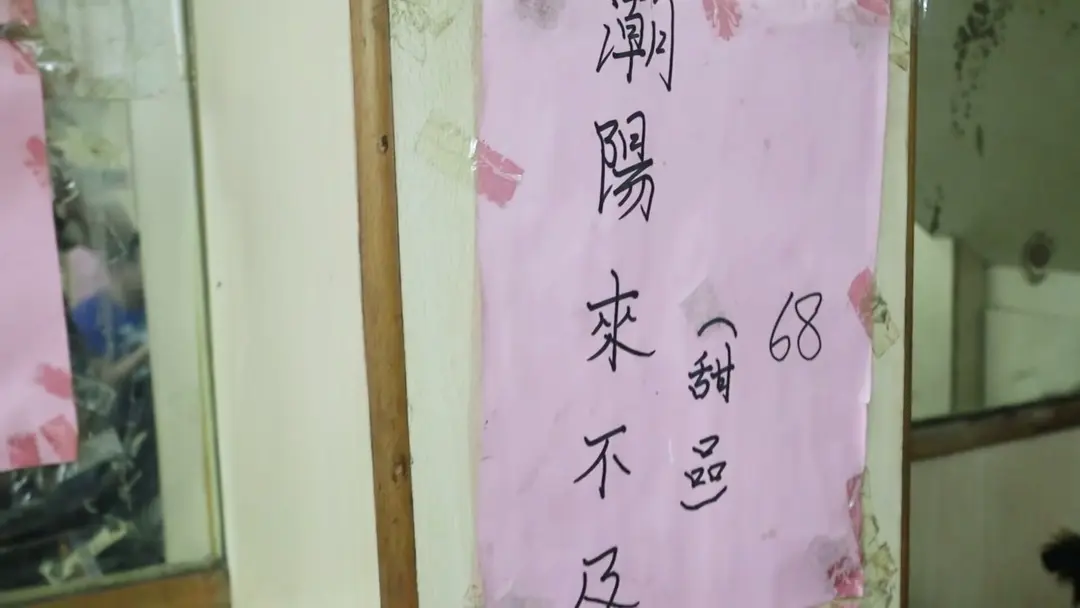 68
（甜品）
潮陽來不及